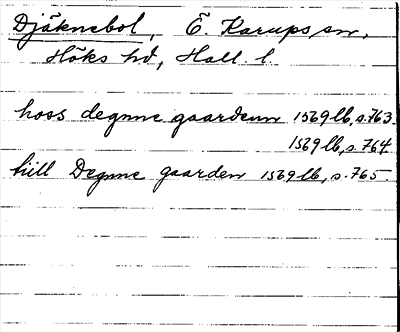 Djäknebol, Ö. Karups sn,
Höks hd, Hall. l.
hoss degnne gaardenn 1569 lb, s. 763.
1569 lb, s. 764
till Degnne gaarden 1569 lb, s. 765.